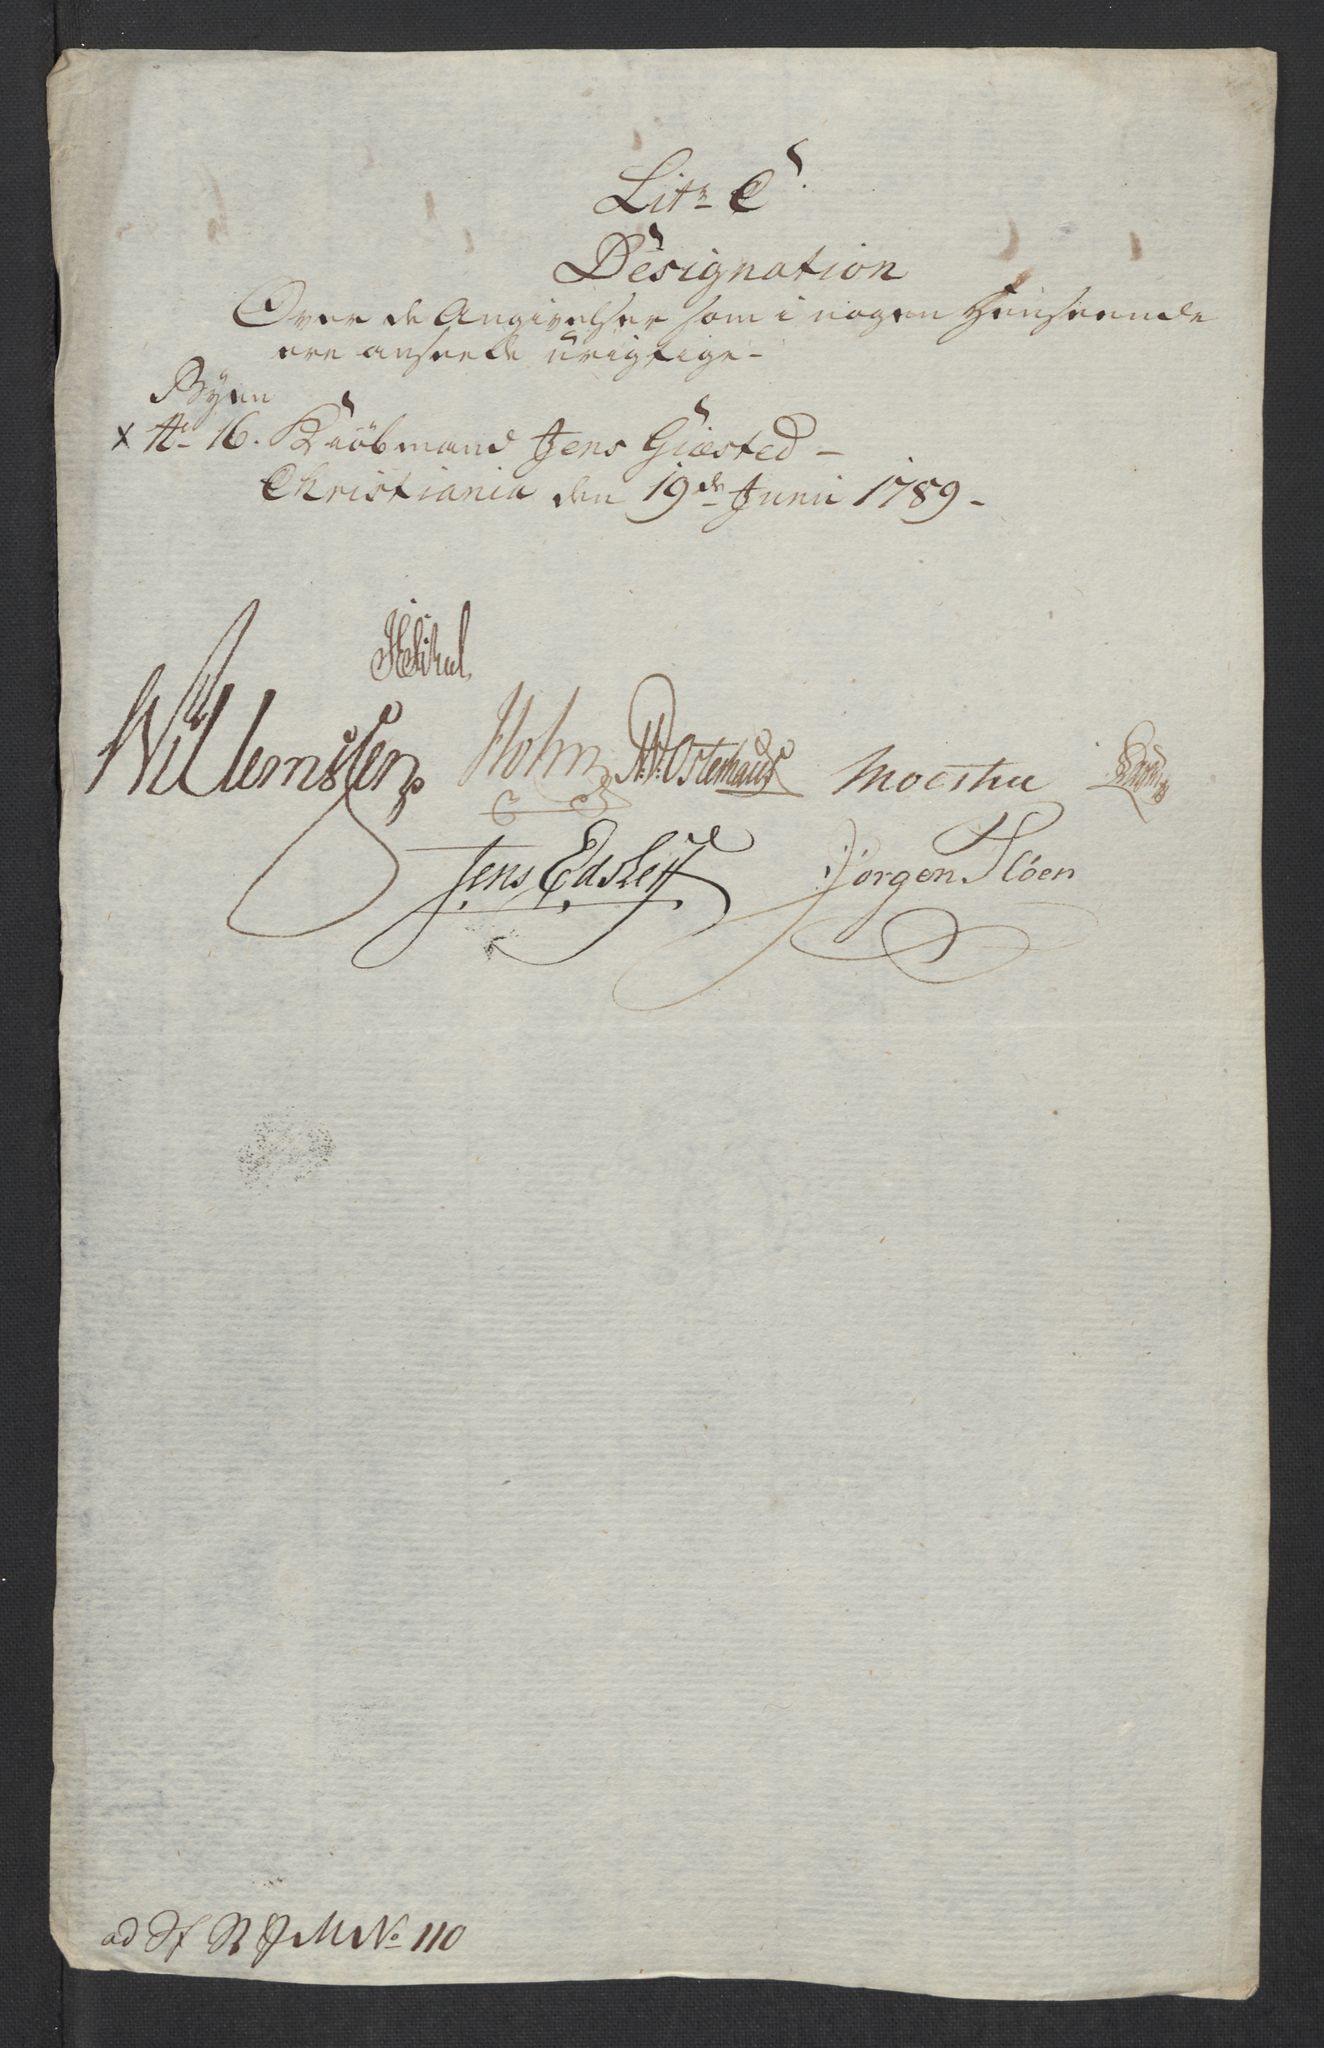 Litr C.
Designation
Over de Angivelser som i nogen Henseende
ere anseete urigtige -
Byen
x No 16. Kiöbmand Jens Giæsted -
Christiania den 19de Junii 1789 -
Willemssen Holm N: Ostenhaus Moesthue
Jens Edsleff Jörgen Flöen
ad No 110